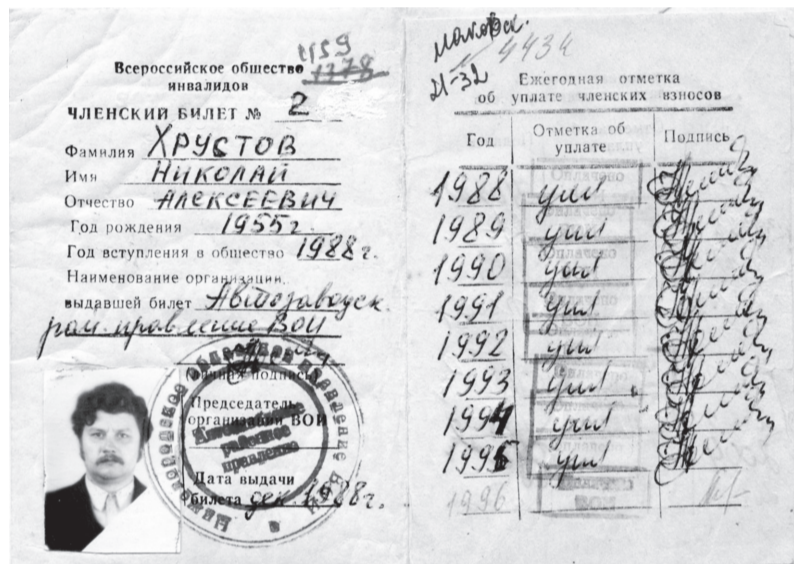 1159
1778
Всероссийское общество
инвалидов
ЧЛЕНСКИЙ БИЛЕТ № 2
Фамилия ХРУСТОВ
Имя НИКОЛАЙ
Отчество АЛЕКСЕЕВИЧ
Год рождения 1955г.
Год вступления в общество 1988г.
Наименование организации,
выдавшей билет Автозаводск.
рай. правление ВОИ
Личная подпись
Председатель
организации ВОИ
Автозаводское
районное
правление
Дата выдачи
билета дек. 1988г.
4434
21-32
Ежегодная отметка
об уплате членских взносов
Год Отметка об уплате Подпись
1988 упл
1989 упл
1990 упл
1991 упл
1992 упл
1993 упл
1994 упл
1995 упл
1996